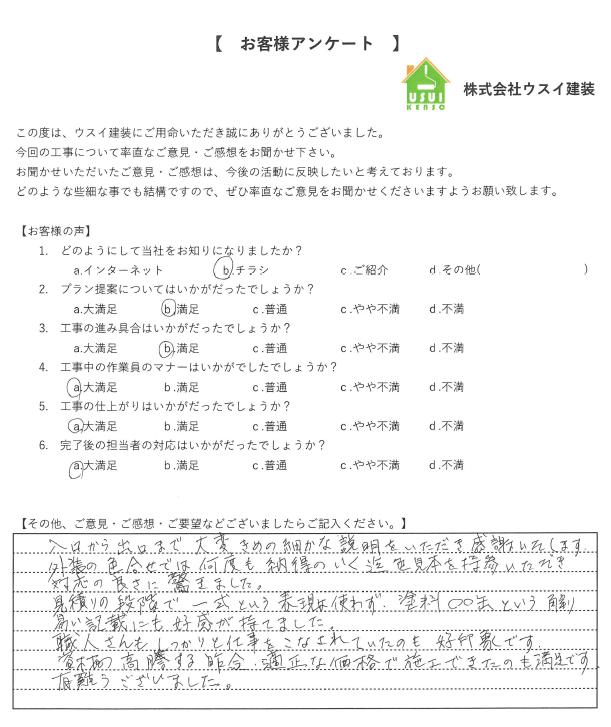 【 お客様アンケート 】
USUI
KENSO
株式会社ウスイ建装
この度は、ウスイ建装にご用命いただき誠にありがとうございました。
今回の工事について率直なご意見・ご感想をお聞かせ下さい。
お聞かせいただいたご意見・ご感想は、今後の活動に反映したいと考えております。
どのような些細な事でも結構ですので、ぜひ率直なご意見をお聞かせくださいますようお願い致します。
【お客様の声】
1. どのようにして当社をお知りになりましたか？
a.インターネット b.チラシ c.ご紹介 d.その他( )
2. プラン提案についてはいかがだったでしょうか？
a.大満足 b.満足 c.普通 c.やや不満 d.不満
3. 工事の進み具合はいかがだったでしょうか？
a.大満足 b.満足 c.普通 c.やや不満 d.不満
4. 工事中の作業員のマナーはいかがでしたでしょうか？
a.大満足 b.満足 c.普通 c.やや不満 d.不満
5. 工事の仕上がりはいかがだったでしょうか？
a.大満足 b.満足 c.普通 c.やや不満 d.不満
6. 完了後の担当者の対応はいかがだったでしょうか？
a.大満足 b.満足 c.普通 c.やや不満 d.不満
【その他、ご意見・ご感想・ご要望などございましたらご記入ください。】
入口から出口まで 大変きめの細かな説明をいただき感謝いたします
外装の色合せでは何度も納得のいく迄色見本を持参いただき
対応の良さに驚きました。
見積りの段階で 一式という表現は使わず、塗料○○缶という 解り
易い記載にも好感が持てました。
職人さんもしっかりと仕事をこなされていたのも 好印象です。
資材の高騰する昨今、適正な価格で施工できたのも満足です
有難うございました。